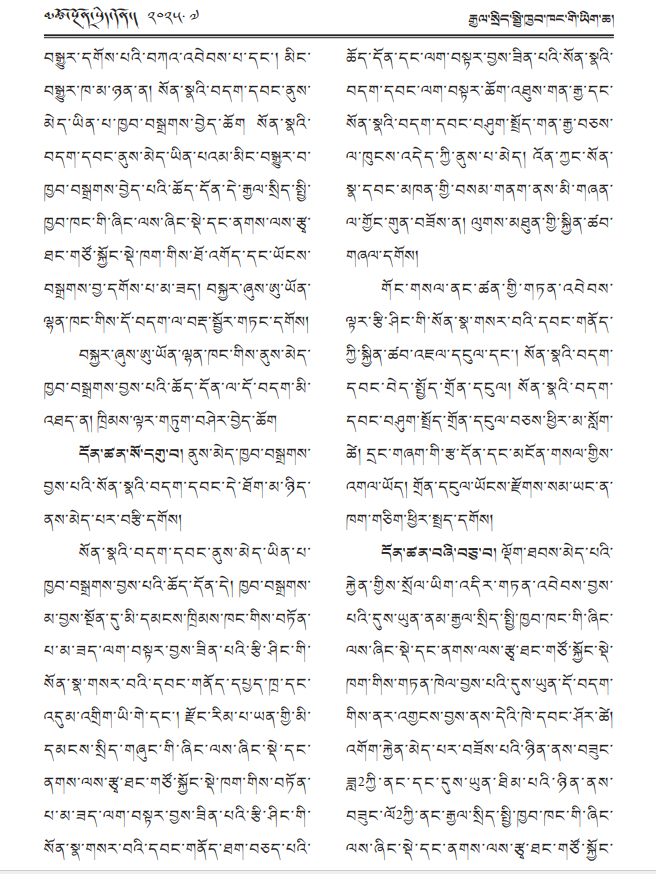 ༢༠༢༥.༧
རྒྱལ་སྲིད་སྤྱི་ཁྱབ་ཁང་གི་ཡིག་ཆ།
བསྒྱུར་དགོས་པའི་བཀའ་འབེབས་པ་དང་། མིང་
བསྒྱུར་ཁ་མ་ཉན་ན། སོན་སྣའི་བདག་དབང་ནུས་
མེད་ཡིན་པ་ཁྱབ་བསྒྲགས་བྱེད་ཆོག སོན་སྣའི་
བདག་དབང་ནུས་མེད་ཡིན་པའམ་མིང་བསྒྱུར་བ་
ཁྱབ་བསྒྲགས་བྱེད་པའི་ཆོད་དོན་དེ་རྒྱལ་སྲིད་སྤྱི་
ཁྱབ་ཁང་གི་ཞིང་ལས་ཞིང་སྡེ་དང་ནགས་ལས་རྩྭ་
ཐང་གཙོ་སྐྱོང་སྡེ་ཁག་གིས་ཐོ་འགོད་དང་ཡོངས་
བསྒྲགས་བྱ་དགོས་པ་མ་ཟད། བསྐྱར་ཞུས་ཨུ་ཡོན་
ལྷན་ཁང་གིས་དོ་བདག་ལ་བརྡ་སྦྱོར་གཏང་དགོས།
བསྐྱར་ཞུས་ཨུ་ཡོན་ལྷན་ཁང་གིས་ནུས་མེད་
ཁྱབ་བསྒྲགས་བྱས་པའི་ཆོད་དོན་ལ་དོ་བདག་མི་
འཐད་ན། ཁྲིམས་ལྟར་གཏུག་བཤེར་བྱེད་ཆོག
དོན་ཚན་སོ་དགུ་བ། ནུས་མེད་ཁྱབ་བསྒྲགས་
བྱས་པའི་སོན་སྣའི་བདག་དབང་དེ་ཐོག་མ་ཉིད་
ནས་མེད་པར་བརྩི་དགོས།
སོན་སྣའི་བདག་དབང་ནུས་མེད་ཡིན་པ་
ཁྱབ་བསྒྲགས་བྱས་པའི་ཆོད་དོན་དེ། ཁྱབ་བསྒྲགས་
མ་བྱས་སྔོན་དུ་མི་དམངས་ཁྲིམས་ཁང་གིས་བཏོན་
པ་མ་ཟད་ལག་བསྟར་བྱས་ཟིན་པའི་རྩི་ཤིང་གི་
སོན་སྣ་གསར་བའི་དབང་གནོད་དཔྱད་ཁྲ་དང་
འདུམ་འགྲིག་ཡི་གེ་དང་། རྫོང་རིམ་པ་ཡན་གྱི་མི་
དམངས་སྲིད་གཞུང་གི་ཞིང་ལས་ཞིང་སྡེ་དང་
ནགས་ལས་རྩྭ་ཐང་གཙོ་སྐྱོང་སྡེ་ཁག་གིས་བཏོན་
པ་མ་ཟད་ལག་བསྟར་བྱས་ཟིན་པའི་རྩི་ཤིང་གི་
སོན་སྣ་གསར་བའི་དབང་གནོད་ཐག་བཅད་པའི་
ཆོད་དོན་དང་ལག་བསྟར་བྱས་ཟིན་པའི་སོན་སྣའི་
བདག་དབང་ལག་བསྟར་ཆོག་འཐུས་གན་རྒྱ་དང་
སོན་སྣའི་བདག་དབང་བཤུག་སྤྲོད་གན་རྒྱ་བཅས་
ལ་ཁུངས་འདེད་ཀྱི་ནུས་པ་མེད། འོན་ཀྱང་སོན་
སྣ་དབང་མཁན་གྱི་བསམ་གནག་ནས་མི་གཞན་
ལ་གྱོང་གུན་བཟོས་ན། ལུགས་མཐུན་གྱི་སྐྱིན་ཚབ་
གཞལ་དགོས།
གོང་གསལ་ནང་ཚན་གྱི་གཏན་འབེབས་
ལྟར་རྩི་ཤིང་གི་སོན་སྣ་གསར་བའི་དབང་གནོད་
ཀྱི་སྐྱིན་ཚབ་འཇལ་དངུལ་དང་། སོན་སྣའི་བདག་
དབང་བེད་སྤྱོད་གྲོན་དངུལ། སོན་སྣའི་བདག་
དབང་བཤུག་སྤྲོད་གྲོན་དངུལ་བཅས་ཕྱིར་མ་སློག་
ཚེ། དྲང་གཞག་གི་རྩ་དོན་དང་མངོན་གསལ་གྱིས་
འགལ་ཡོད། གྲོན་དངུལ་ཡོངས་རྫོགས་སམ་ཡང་ན་
ཁག་གཅིག་ཕྱིར་སྤྲད་དགོས།
དོན་ཚན་བཞི་བཅུ་བ། ལྡོག་ཐབས་མེད་པའི་
རྐྱེན་གྱིས་སྲོལ་ཡིག་འདིར་གཏན་འབེབས་བྱས་
པའི་དུས་ཡུན་ནམ་རྒྱལ་སྲིད་སྤྱི་ཁྱབ་ཁང་གི་ཞིང་
ལས་ཞིང་སྡེ་དང་ནགས་ལས་རྩྭ་ཐང་གཙོ་སྐྱོང་སྡེ་
ཁག་གིས་གཏན་ཁེལ་བྱས་པའི་དུས་ཡུན་དོ་བདག་
གིས་ནར་འགྱངས་བྱས་ནས་དེའི་ཁེ་དབང་ཤོར་ཚེ།
འགོག་རྐྱེན་མེད་པར་བཟོས་པའི་ཉིན་ནས་བཟུང་
ཟླ2ཀྱི་ནང་དང་དུས་ཡུན་ཐིམ་པའི་ཉིན་ནས་
བཟུང་ལོ2ཀྱི་ནང་རྒྱལ་སྲིད་སྤྱི་ཁྱབ་ཁང་གི་ཞིང་
ལས་ཞིང་སྡེ་དང་ནགས་ལས་རྩྭ་ཐང་གཙོ་སྐྱོང་